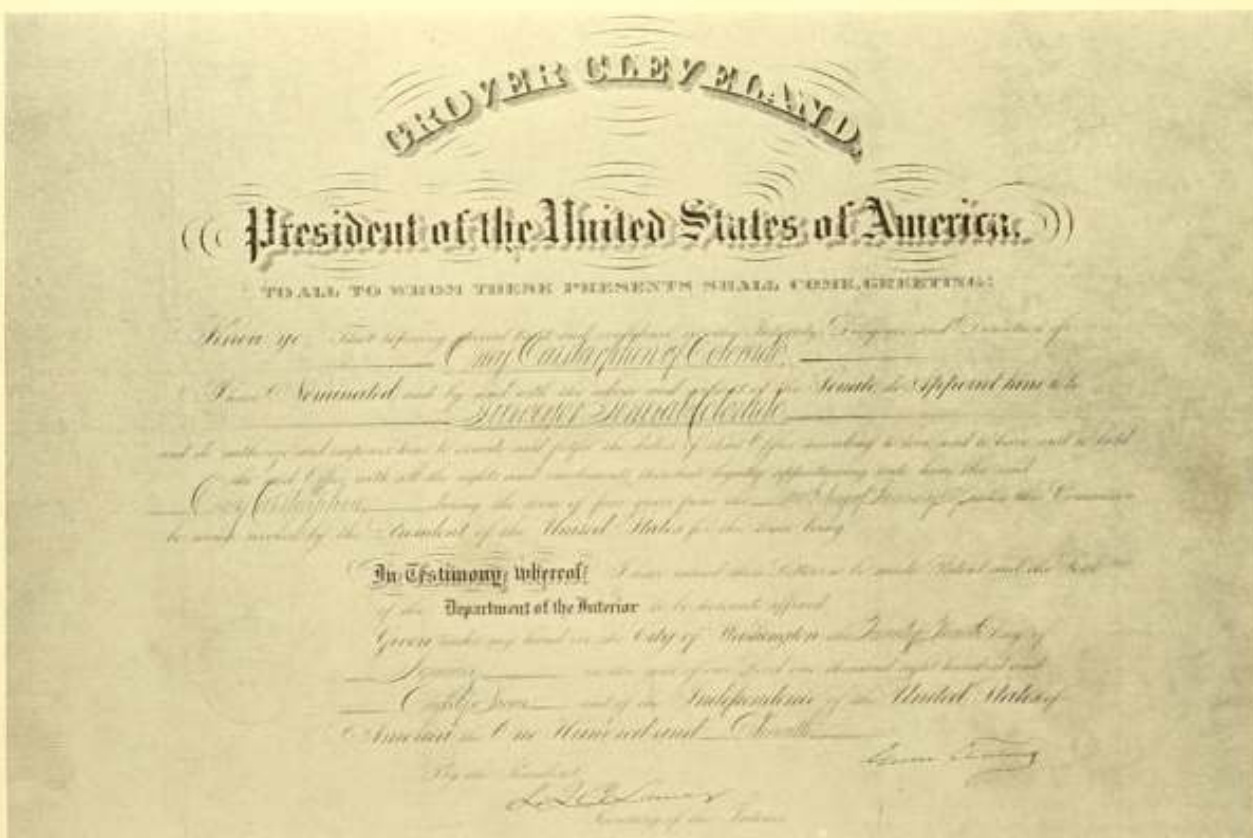 GROVER CLEVELAND,
President of the United States of America.
TO ALL TO WHOM THESE PRESENTS SHALL COME, GREETING:
Know ye That reposing special trust and confidence in the Integrity, Diligence and Discretion of
of Colorado
I have Nominated and by and with the advice and consent of the Senate, do Appoint him to be
Surveyor General Colorado
and do authorize and empower him to execute and fulfil the duties of that Office according to law, and to have and to hold
the said Office, with all the rights and emoluments thereunto legally appertaining unto him the said
during the term of four years from the day of
be sooner revoked by the President of the United States for the time being
In Testimony whereof I have caused these Letters to be made Patent and the Seal
of the Department of the Interior to be hereunto affixed
Given under my hand in the City of Washington the Twenty day of
in the year of our Lord one thousand eight hundred and
Eighty and of the Independence of the United States of
America the One Hundred and Eleventh
By the President
Secretary of the Interior